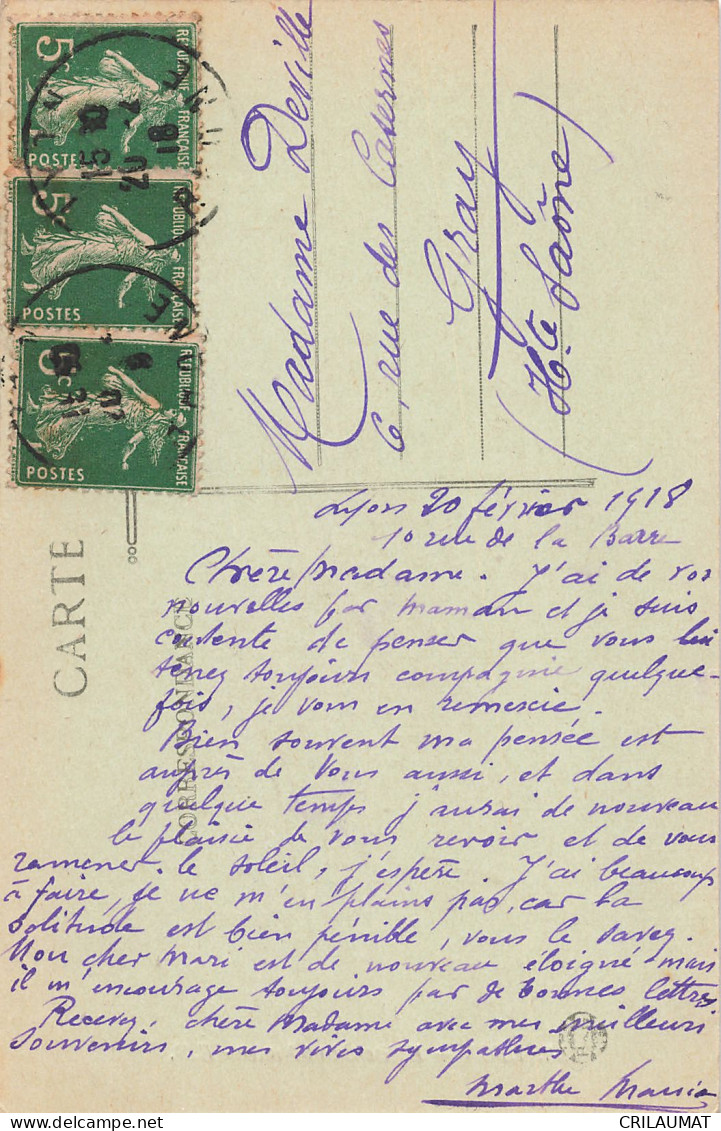 5c
REPUBLIQUE FRANÇAISE
POSTES
5c
REPUBLIQUE FRANÇAISE
POSTES
5c
REPUBLIQUE FRANÇAISE
POSTES
Madame Deville
6, rue des Casernes
Gray
(Hte Saône)
CARTE
CORRESPONDANCE
Lyon 20 février 1918
10 rue de la Barre
Chère Madame. J'ai de vos
nouvelles par maman et je suis
contente de penser que vous lui
tenez toujours compagnie quelque-
fois, je vous en remercie.
Bien souvent ma pensée est
auprès de Vous aussi, et dans
quelque temps j'aurai de nouveau
le plaisir de vous revoir et de vous
ramener le soleil, j'espère. J'ai beaucoup
à faire, je ne m'en plains pas, car la
solitude est bien pénible, vous le savez.
Mon cher Mari est de nouveau éloigné mais
il m'encourage toujours par de bonnes lettres
Recevez, chère Madame avec mes meilleurs
souvenirs, mes vives sympathies
Marthe
CRILAUMAT